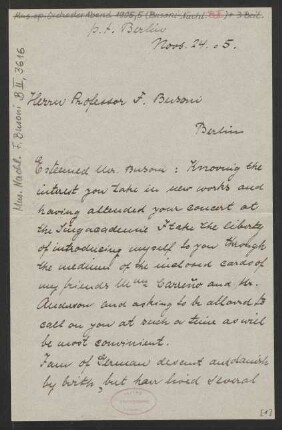 Mus. Nachl. F. Busoni B II, 3616
p.t. Berlin
Novb. 24. 05.
Herrn Professor F. Busoni
Berlin
Esteemed Mr. Busoni: Knowing the
interest you take in new works and
having attended your concert at
the Singacademie I take the liberty
of introducing myself to you through
the medium of the inclosed cards of
my friends Mme Carreño and Mr.
Anderson and asking to be allowed to
call on you at such a time as will
be most convinient.
I am of German descent and danish
by birth, but have lived several
[1]